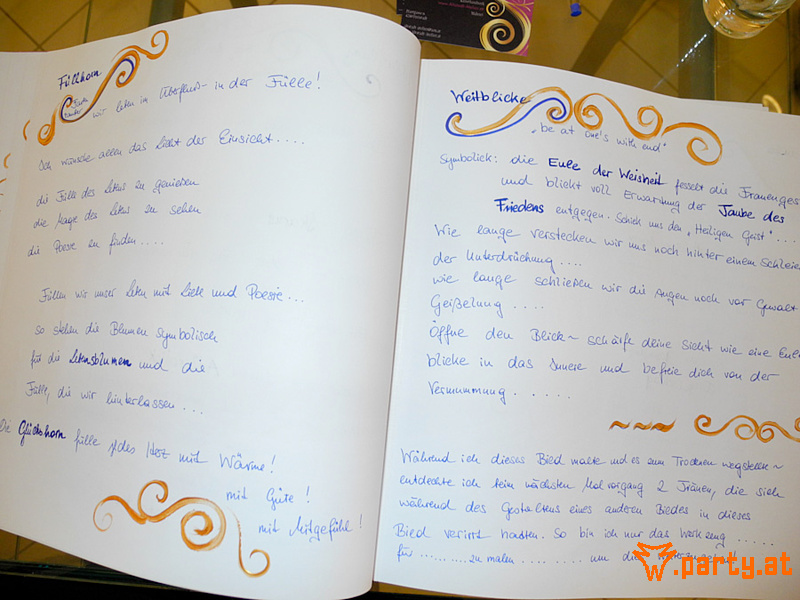 Füllhorn
wir leben im Überfluß - in der Fülle!
Ich wünsche allen das Licht der Einsicht....
die Fülle des Lebens zu genießen
die Magie des Lebens zu sehen
die Poesie zu finden....
Füllen wir unser Leben mit Liebe und Poesie...
so stehen die Blumen symbolisch
für die Lebensblumen und die
Fülle, die wir hinterlassen...
Die Glückshorn fülle jedes Herz mit Wärme!
mit Güte!
mit Mitgefühl!
Weitblicke
"be at one's with end"
Symbolick: die Eule der Weisheit fesselt die
und blickt voll Erwartung der Taube des
Friedens entgegen. Schick uns den "Heiligen Geist"....
Wie lange verstecken wir uns noch hinter einem Schleier
der Unterdrückung....
wie lange schließen wir die Augen noch vor Gewalt
Geißelung....
Öffne den Blick ~ schärfe deine Sicht wie eine Eule
blicke in das Innere und befreie dich von der
Vermummung......
Während ich dieses Bied malte und es zum Trocknen wegstellte ~
entdeckte ich beim nächsten Malvorgang 2 Tränen, die sich
während des Gestaltens eines anderen Biedes in dieses
Bied verirrt hatten. So bin ich nur das Werkzeug......
für.........zu malen.........um die
party.at